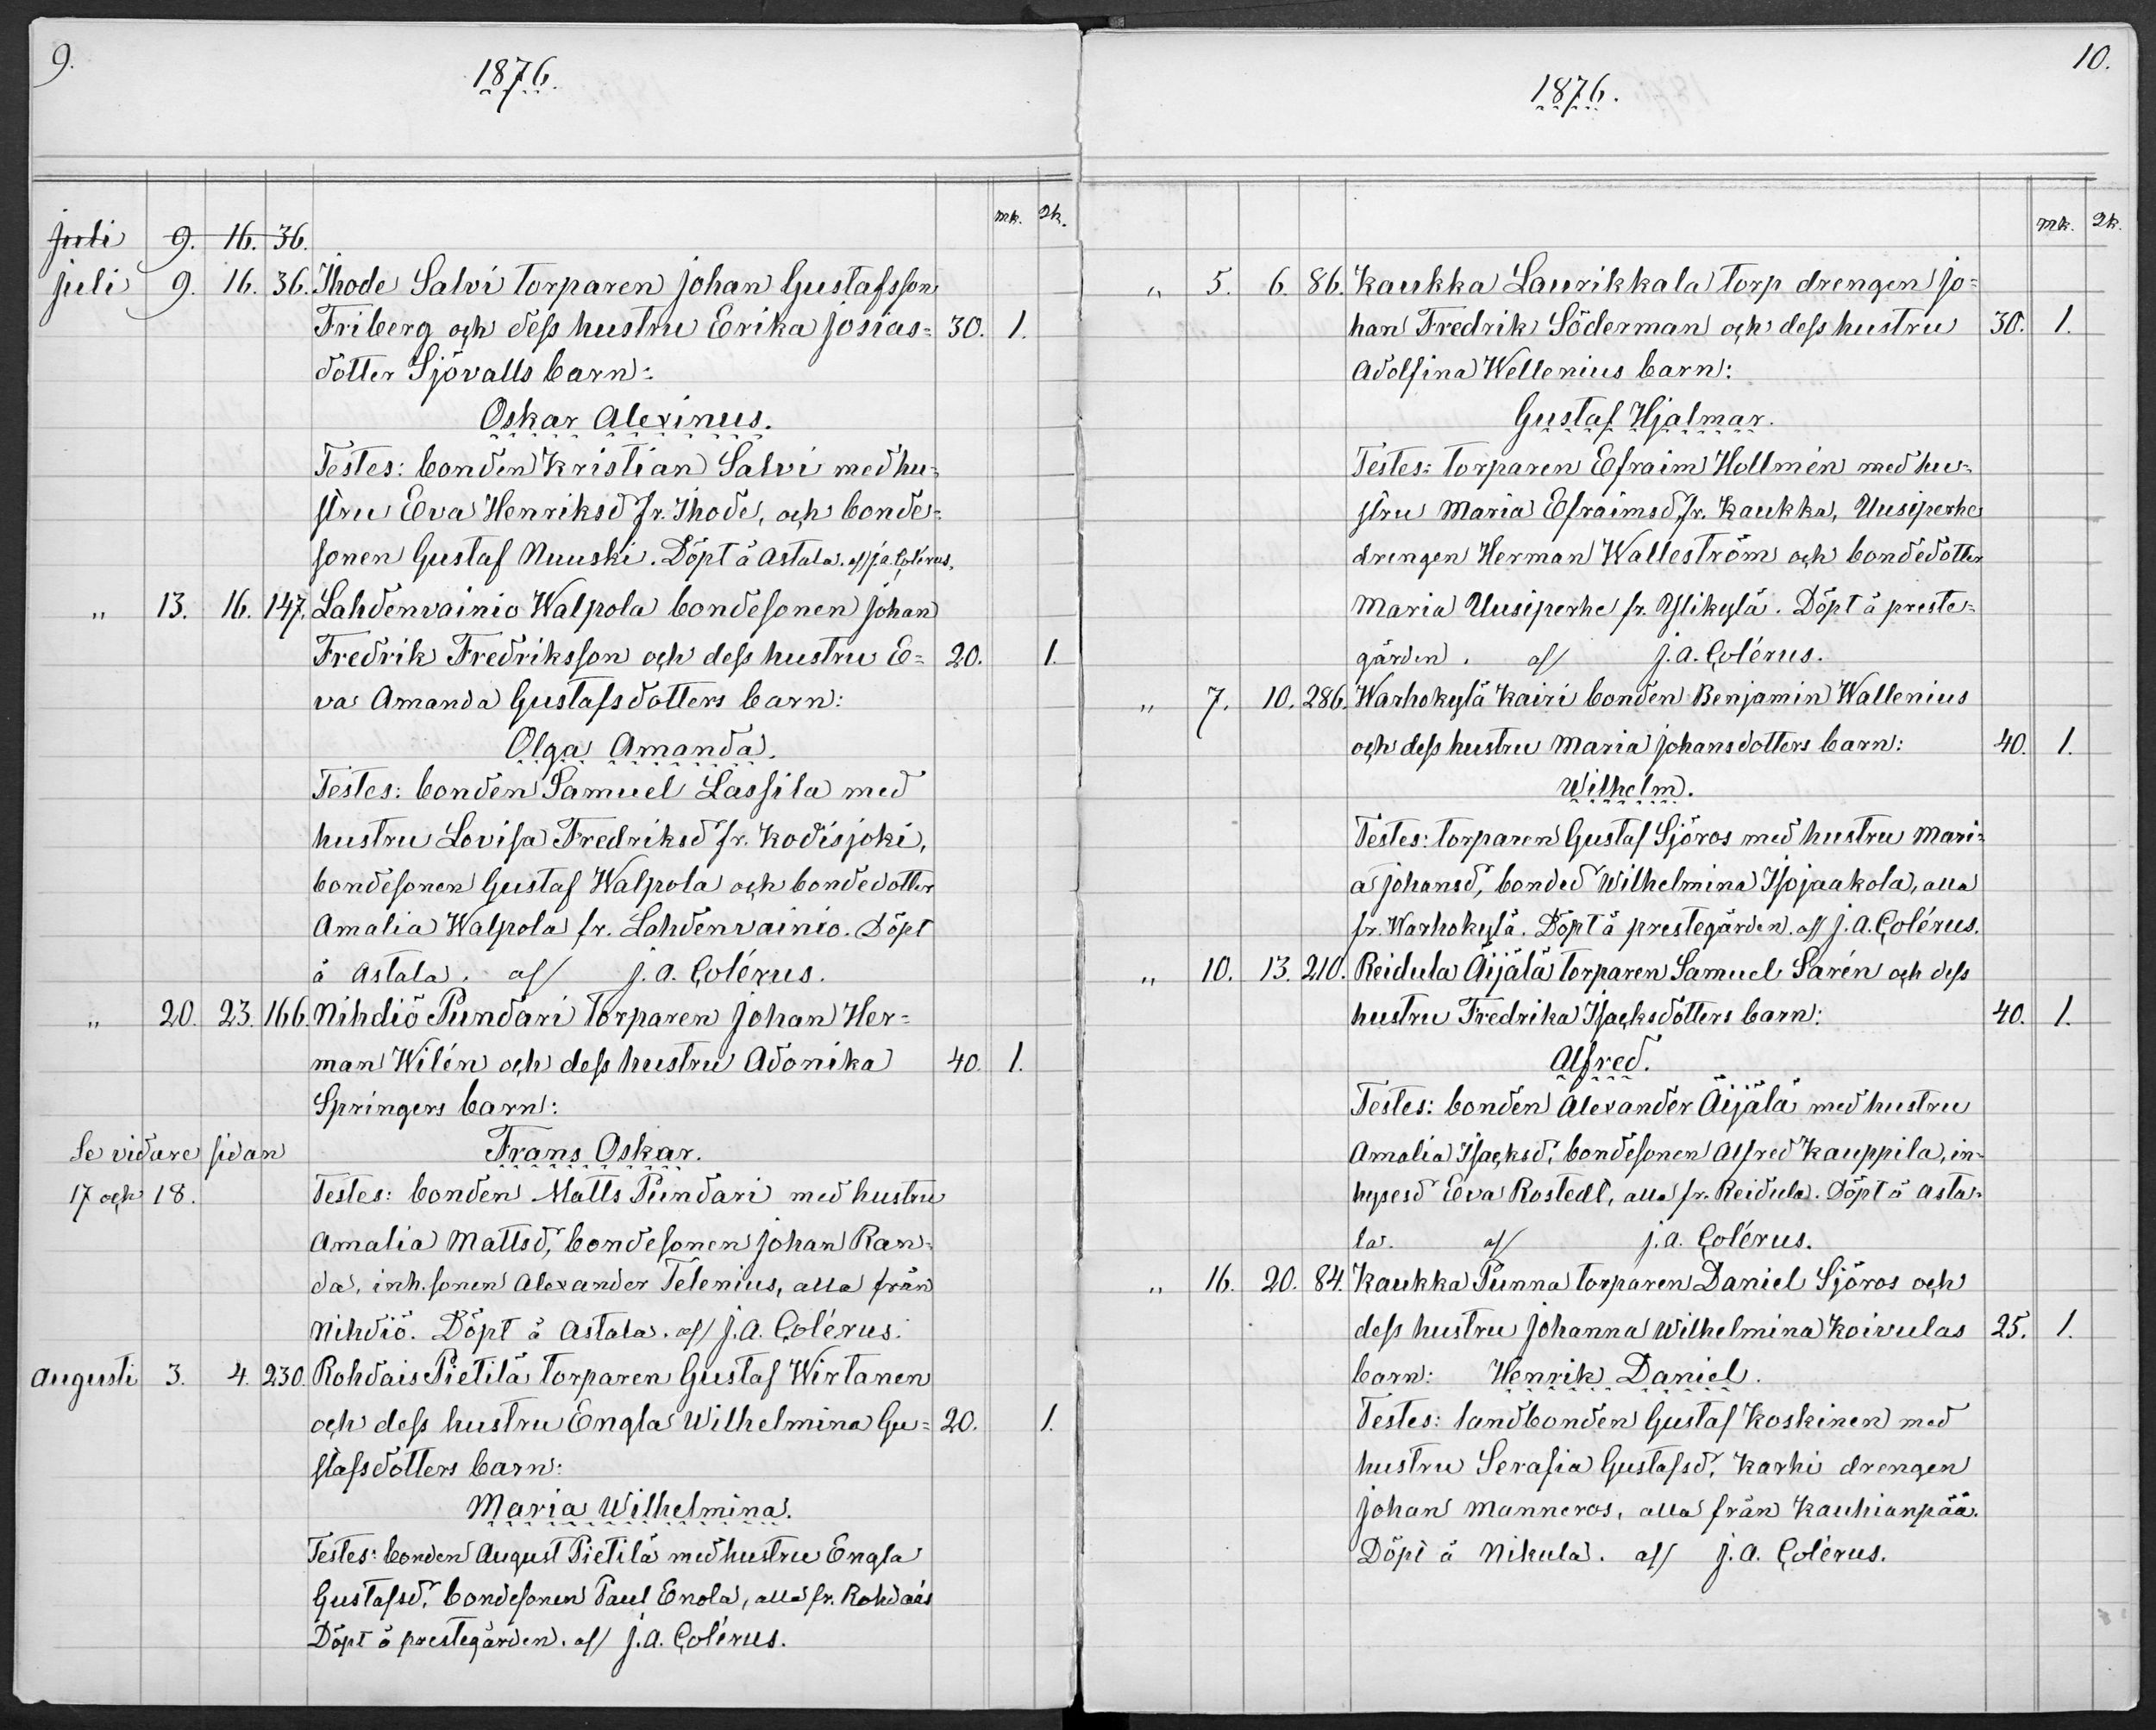 9.
1876.
mk. Qk.
juli 9. 16. 36.
juli 9. 16. 36. Ihode Salvi torparen Johan Gustafsson
Friberg och dess hustru Erika Josias= 30. 1.
dotter Sjövalls barn:
Oskar Alexinus.
Testes: bonden Kristian Salvi med hu=
stru Eva Henriksd fr. Ihode, och bonde=
sonen Gustaf Nuuski. Döpt å Astala. af J.A. Colérus.
" 13. 16. 147. Lahdenvainio Walpola bondesonen Johan
Fredrik Fredriksson och dess hustru E= 20. 1.
va Amanda Gustafsdotters barn:
Olga Amanda.
Testes: bonden Samuel Lassila med
hustru Lovisa Fredriksd fr. Kodisjoki,
bondesonen Gustaf Walpola och bondedotter
Amalia Walpola fr. Lahdenvainio. Döpt
å Astala. af J.A. Colérus.
" 20. 23. 166. Nihdiö Pundari torparen Johan Her=
man Wilén och dess hustru Adonika 40. 1.
Springers barn:
Se vidare sidan Frans Oskar.
17 och 18. Testes: bonden Matts Pundari med hustru
Amalia Mattsd, bondesonen Johan Ran=
da, inh.sonen Alexander Telenius, alla från
Nihdiö. Döpt å Astala. af J.A. Colérus.
Augusti 3. 4. 230. Rohdais Pietilä torparen Gustaf Wirtanen
och dess hustru Engla Wilhelmina Gu= 20. 1.
stafsdotters barn:
Maria Wilhelmina.
Testes: bonden August Pietilä med hustru Engla
Gustafsd, bondesonen Paul Enola, alla fr. Rohdais
Döpt å prestegården. af J.A. Colérus.
10.
1876.
mk. Qk.
" 5. 6. 86. Kaukka Laurikkala torp drengen Jo=
han Fredrik Söderman och dess hustru 30. 1.
Adolfina Wellenius barn:
Gustaf Hjalmar.
Testes: torparen Efraim Hollmén med hu=
stru Maria Efraimsd, fr. Kaukka, Uusiperhe
drengen Herman Walleström och bondedotter
Maria Uusiperhe fr. Ylikylä. Döpt å preste=
gården. af J.A. Colérus.
" 7. 10. 286. Warhokylä Kairi bonden Benjamin Wallenius
och dess hustru Maria Johansdotters barn: 40. 1.
Wilhelm.
Testes: torparen Gustaf Sjöros med hustru Mari=
a Johansd, bonded Wilhelmina Isojaakola, alla
fr. Warhokylä. Döpt å prestegården. af J.A. Colérus.
" 10. 13. 210. Reidula Äijälä torparen Samuel Sarén och dess
hustru Fredrika Isacksdotters barn: 40. 1.
Alfred.
Testes: bonden Alexander Äijälä med hustru
Amalia Isacksd, bondesonen Alfred Kauppila, in=
hysesd Eva Rostedt, alla fr. Reidula. Döpt å Asta=
la. af J.A. Colérus.
" 16. 20. 84. Kaukka Punna torparen Daniel Sjöros och
dess hustru Johanna Wilhelmina Koivulas 25. 1.
barn: Henrik Daniel.
Testes: landbonden Gustaf Koskinen med
hustru Serafia Gustafsd, Karhi drengen
Johan Manneros, alla från Kauhianpää.
Döpt å Nikula. af J.A. Colérus.